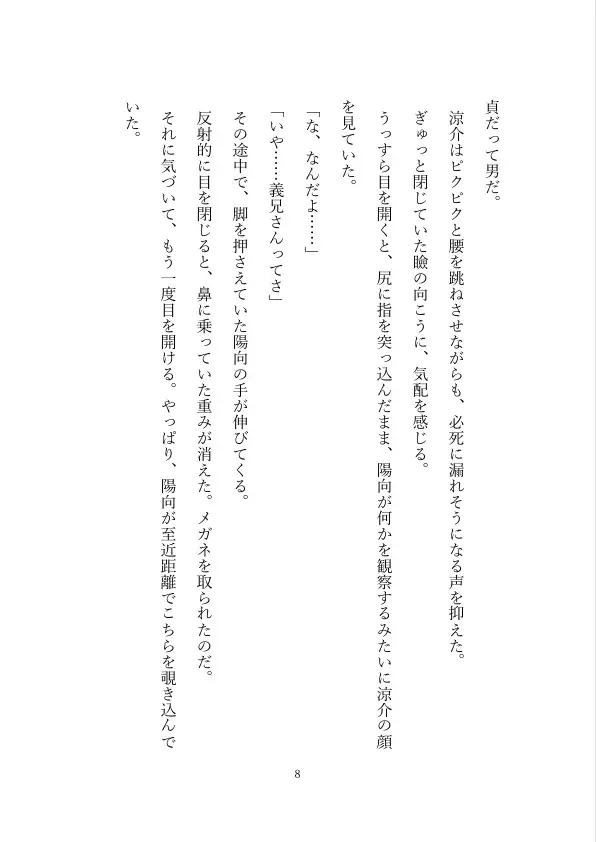 貞だって男だ。
　涼介はピクピクと腰を跳ねさせながらも、必死に漏れそうになる声を抑えた。
　ぎゅっと閉じていた瞼の向こうに、気配を感じる。
　うっすら目を開くと、尻に指を突っ込んだまま、陽向が何かを観察するみたいに涼介の顔
を見ていた。
「な、なんだよ……」
「いや……義兄さんってさ」
　その途中で、脚を押さえていた陽向の手が伸びてくる。
　反射的に目を閉じると、鼻に乗っていた重みが消えた。メガネを取られたのだ。
　それに気づいて、もう一度目を開ける。やっぱり、陽向が至近距離でこちらを覗き込んで
いた。
8